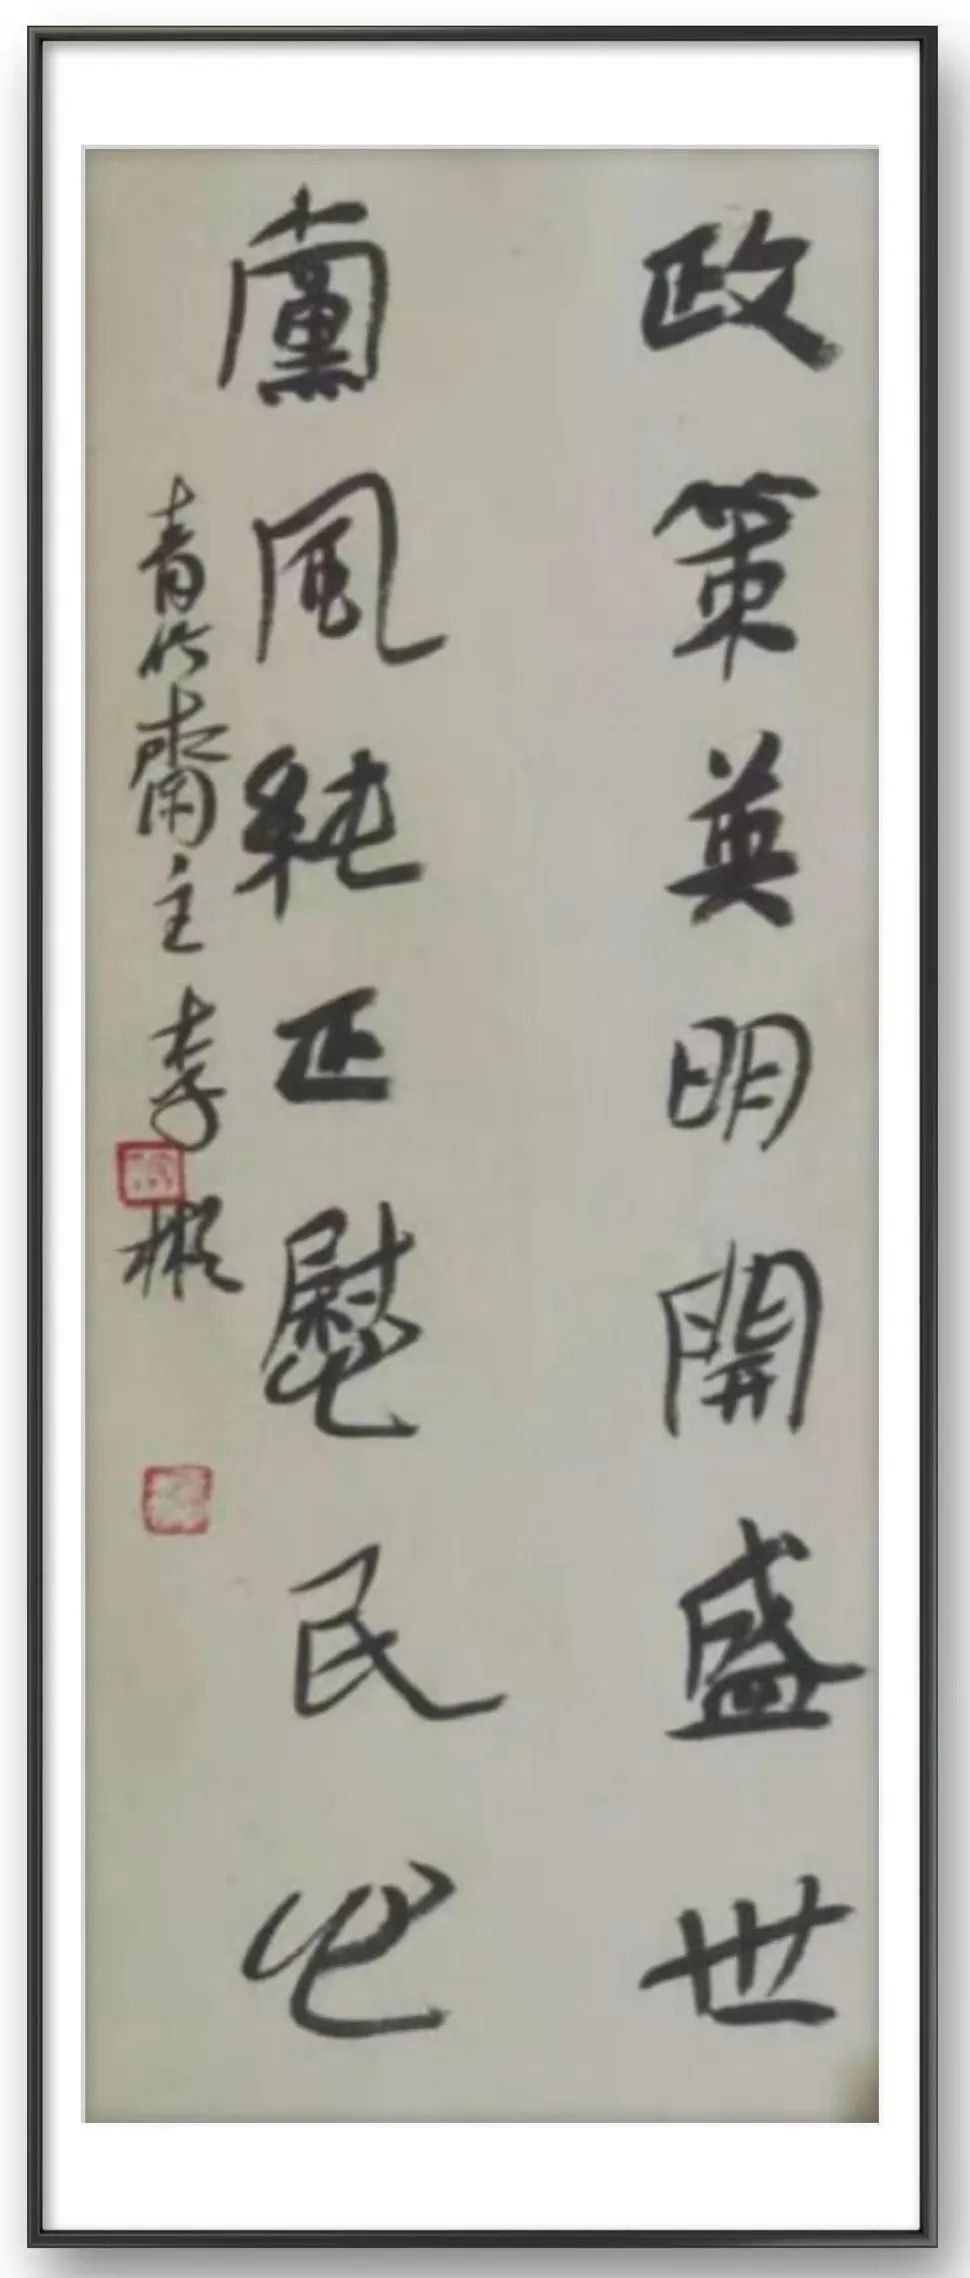 政策英明開盛世
黨風純正慰民心
青竹齋主李彬